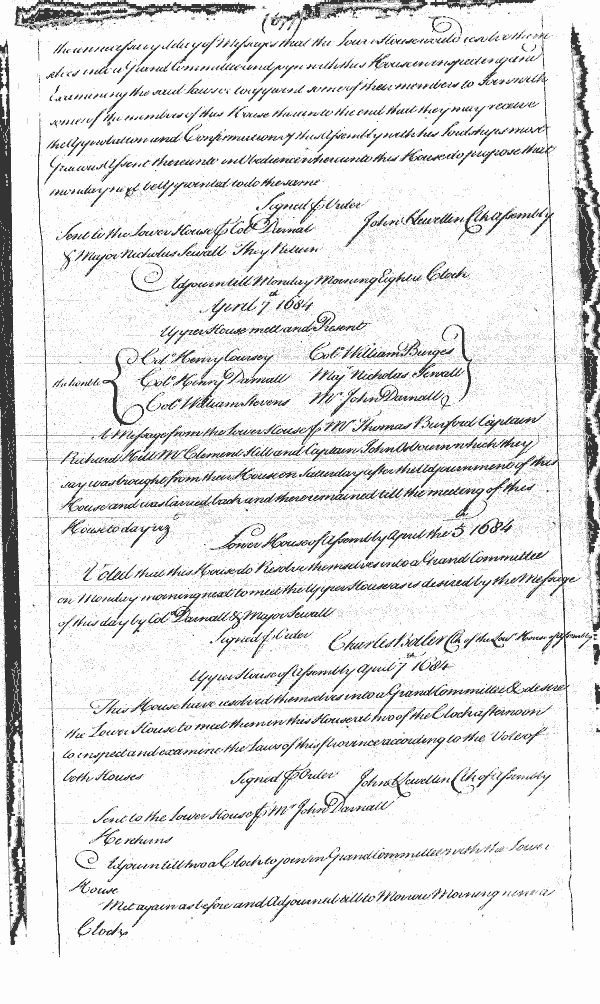 the unnecessary delay of Messages that the Lower House would resolve them
selves into a Grand Committee and joyn with this House in inspecting and
Examining the said Laws or to appoint some of their members to Joyn with
some of the members of this House thereunto to the end that they may receive
the Approbation and Confirmation of this Assembly with his Lordships most
Gracious Assent thereunto in Obedience whereunto this House do propose that
monday next be Appointed to do the same
Signed ꝑ Order
John Llewellen Clk Assembly
Sent to the Lower House ꝑ Col° Darnal
& Major Nicholas Sewall They Return
Adjourn till Monday Morning Eight a Clock
April 7th 1684
Upper House mett and Present
the honble
Col° Henry Coursey Col° William Burges
Col° Henry Darnall Maj' Nicholas Sewall
Col° William Stevens Mr John Darnall
A Message from the Lower House ꝑ Mr Thomas Burford Captain
Richard Hill Mr Clement Hill and Captain John Osbourn which they
say was brought from their House on Saturday after the Adjournment of this
House and was carried back and there remained till the meeting of this
House to day vizt
Lower House of Assembly April the 5th 1684
Voted that this House do Resolve themselves into a Grand Committee
on Monday morning next to meet the Upper House as is desired by the Message
of this day by Col° Darnall & Major Sewall
Signed ꝑ Order Charles Boteler Clk of the Lowr House of Assembly
Upper House of Assembly April 7th 1684
This House have resolved themselves into a Grand Committee & desire
the Lower House to meet them in this House at two of the Clock afternoon
to inspect and examine the Laws of this Province according to the Vote of
both Houses Signed ꝑ Order John Llewellen Clk of Assembly
Sent to the Lower House ꝑ Mr John Darnall
He returns
Adjourn till two a Clock to joyn in Grand Committee with the Lower
House
Met again as before and Adjourned till to Morrow Morning nine a
Clock